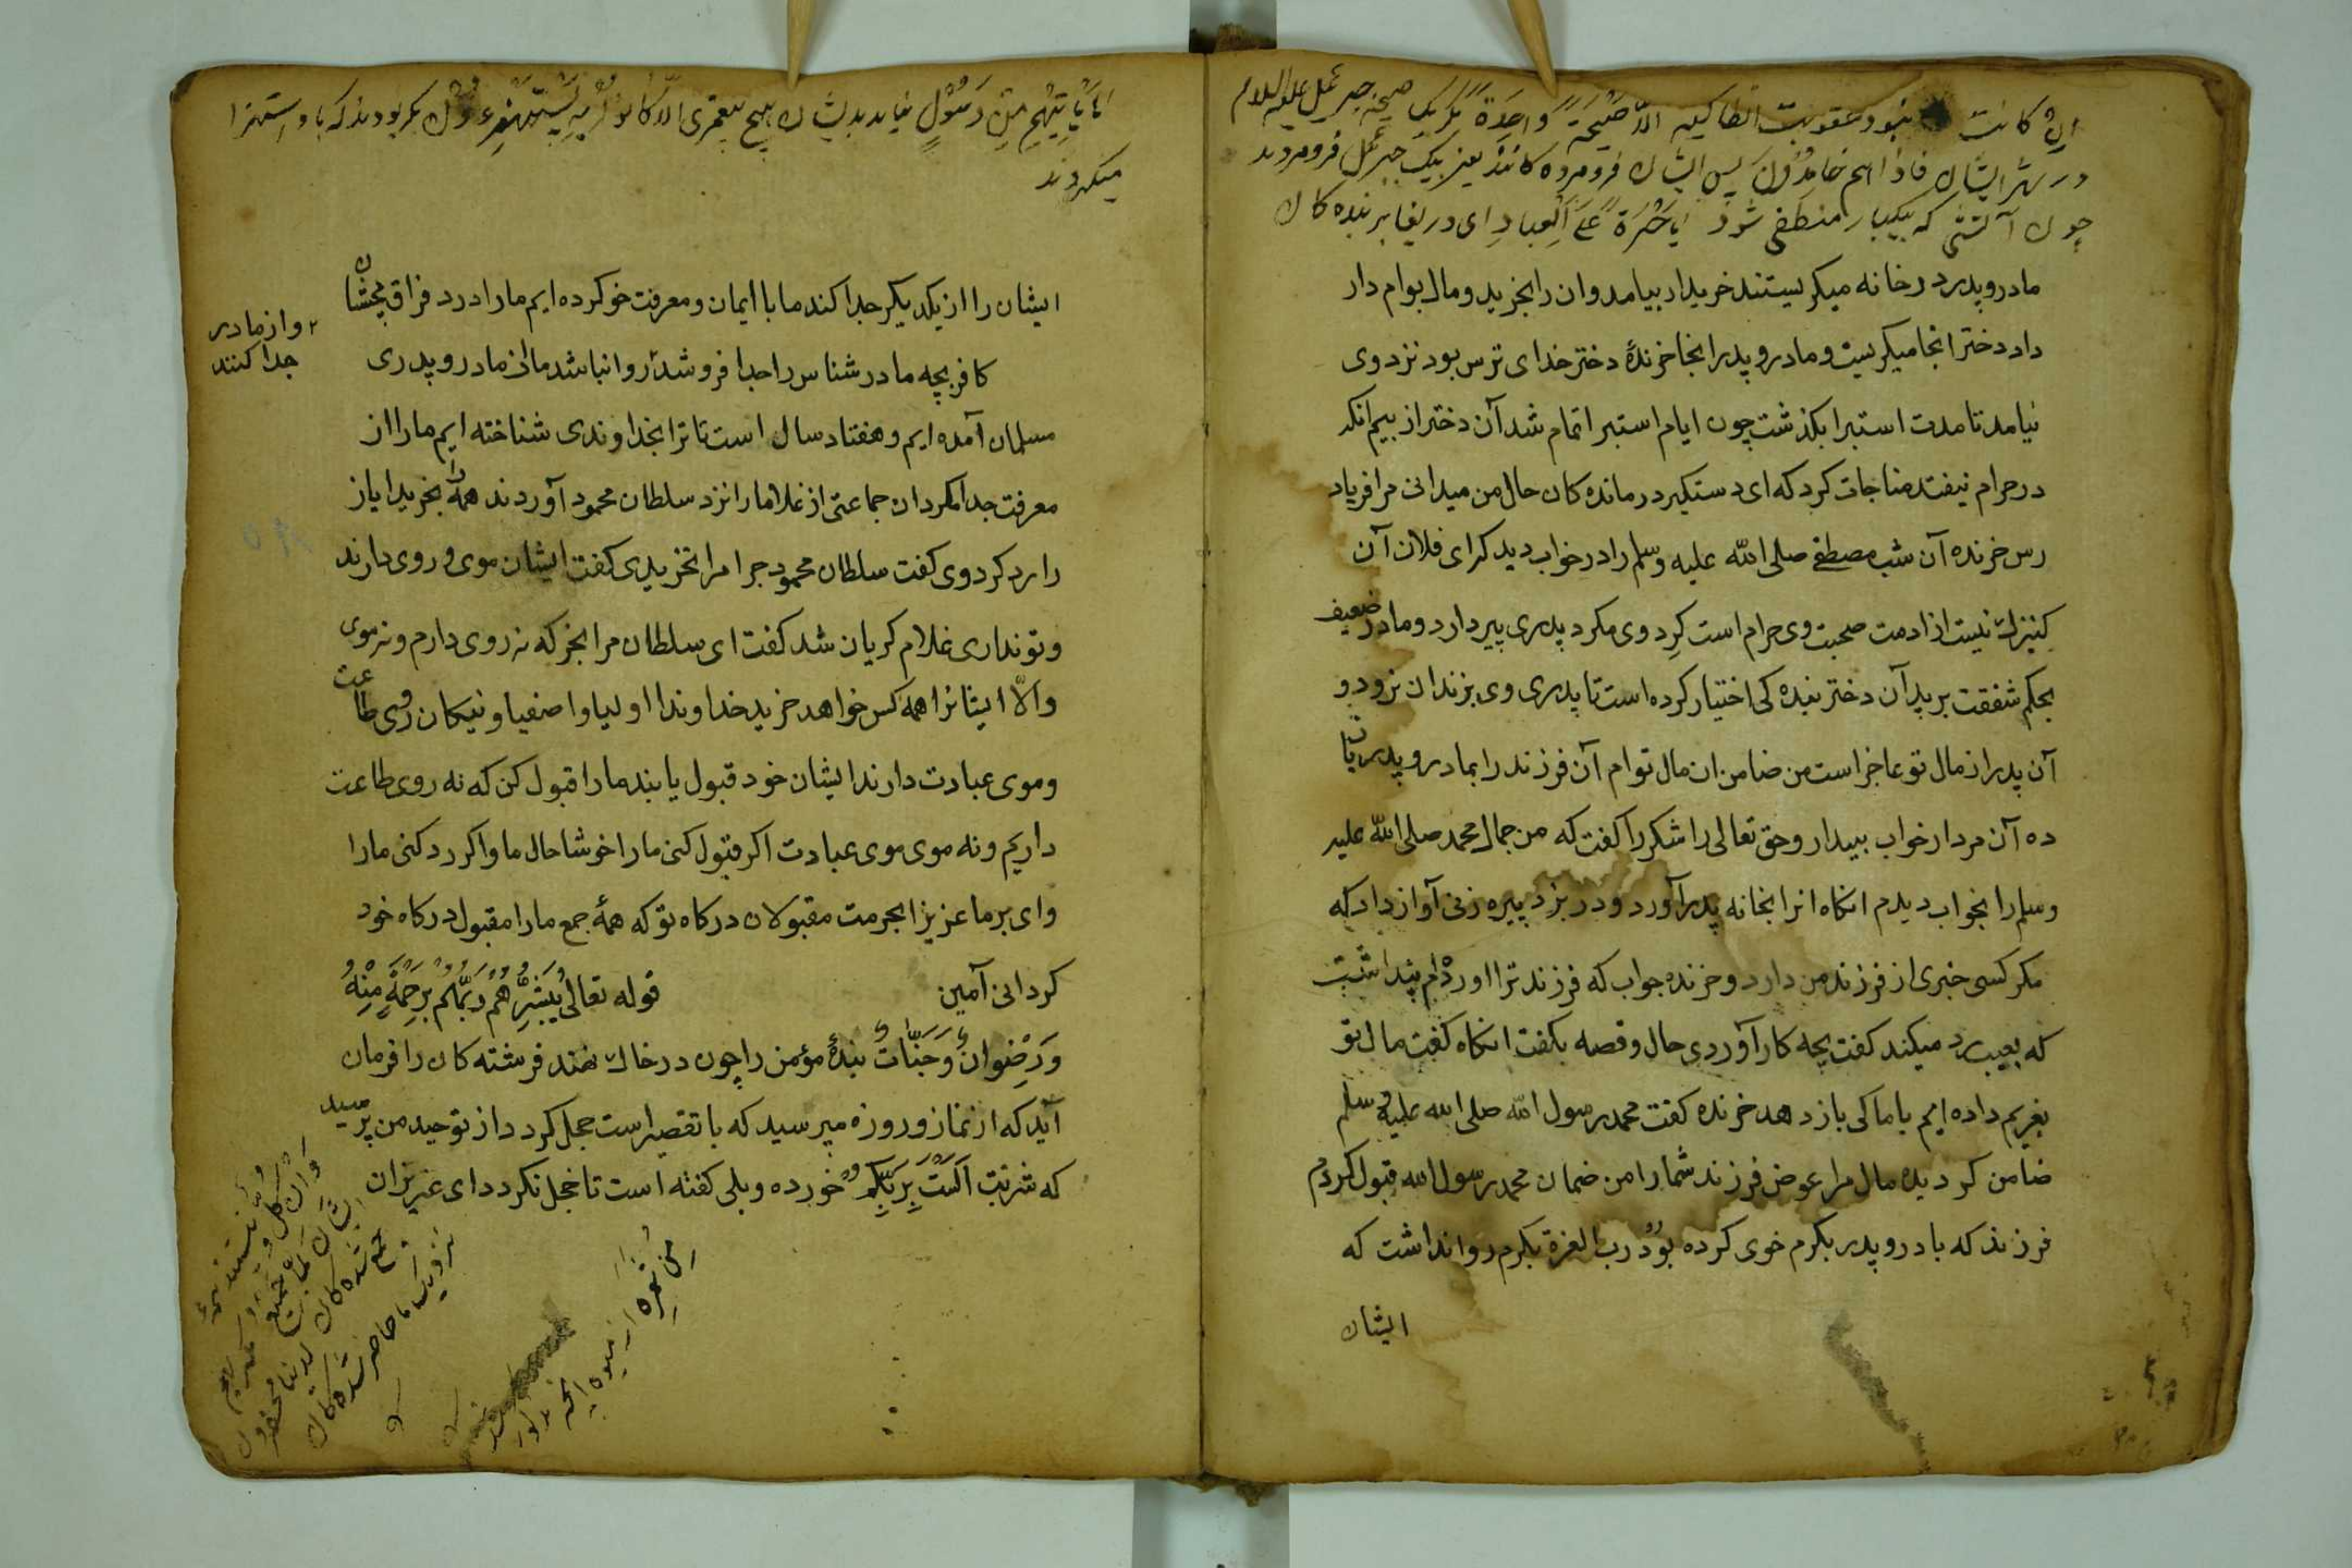 ان كانت نبود عقوبت انطاكيه الّا صَيْحَةً واحِدَةً مكر يک صيحه جبرئيل عليه السلام
در شهر ايشان فاذا هم خامدون پس ايشان فرومرده كانند يعنى بيک جبرئيل فرومردند
چون آتشى كه بيكبار منطفى شود يا حَسْرَةً عَلَى الْعِبادِ اى دريغا بر بنده كان
مادر و پدر در خانه ميكريستند خريدار بيامد وان را بخزيد ومال بوام دار
داد دختر انجا ميكريست و مادر و پدر اينجا خرندهٔ دختر خداى ترس بود نزد وى
نيامد تا مدت استبرا بكذشت چون ايام استبرا تمام شد آن دختر از بيم انكه
در حرام نيفتد مناجات كرد كه اى دستكير درمانده كان حال من ميدانى مرا فرياد
رس خرنده آن شب مصطفى صلى الله عليه وسلم را در خواب ديد كه اى فلان آن
كنيزك نيست ازادست صحبت وى حرام است كرد وى مكرد پدرى پير دارد و مادر ضعيف
بحكم شفقت بر پدر آن دختر بنده كى اختيار كرده است تا پدرى وى بزندان نرود و
آن پدر از مال تو عاجز است من ضامن ان مال توام آن فرزند را بمادر و پدر باز
ده آن مرد از خواب بيدار و حق تعالى را شكر را كفت كه من جمال محمد صلى الله عليه
وسلم را بخواب ديدم انكاه انرا بخانه پدر آورد و در بزد پيره زنى آواز داد كه
مكر كسى خبرى از فرزند من دارد و خرنده جواب كه فرزند ترا اورده ام پنداشت
كه بعيب رد ميكند كفت بچه كار آوردى حال و قصه بكفت انكاه كفت مال تو
بغريم داده ايم با ما كى باز دهد خرنده كفت محمد رسول الله صلى الله عليه وسلم
ضامن كرديده مال مرا عوض فرزند شما را من ضمان محمد رسول الله قبول كردم
فرزند كه با در و پدر بكرم خوى كرده بود رب العزة بكرم روا نداشت كه
ايشان
ما يَأْتِيهِمْ مِنْ رَسُولٍ نيايد بديشان هيچ پيغمبرى الّا كانوا بِهِ يَسْتَهْزِءُونَ مكر بودند كه با او استهزا
ميكردند
ايشان را از يكديكر جدا كند ما با ايمان و معرفت خو كرده ايم ما را درد فراق مچشان
و از مادر
جدا كنند
كافر بچه مادر شناس را جدا فروشد روا نباشد ما از مادر و پدرى
مسلمان آمده ايم و هفتاد سال است تا ترا بخداوندى شناخته ايم ما را از
معرفت جدا مكردان جماعتى از غلاما را نزد سلطان محمود آوردند همه را بخريد اياز
را رد كرد وى كفت سلطان محمود چرا مرا نخريدى كفت ايشان موى و روى دارند
و تو ندارى غلام كريان شد كفت اى سلطان مرا بخر كه نه روى دارم و نه موى
والّا ايشانرا همه كس خواهد خريد خداوندا اوليا و اصفيا و نيكان روى طاعت
و موى عبادت دارند ايشان خود قبول يابند ما را قبول كن كه نه روى طاعت
داريم و نه موى موى عبادت اكر قبول كنى ما را خوشا حال ما و اكر رد كنى ما را
واى بر ما عزيزا بحرمت مقبولان دركاه تو كه همهٔ جمع ما را مقبول دركاه خود
كردانى آمين قوله تعالى يُبَشِّرُهُمْ رَبُّهُمْ بِرَحْمَةٍ مِنْهُ
وَرِضْوانٌ وَجَنَّاتٌ بندهٔ مؤمن را چون در خاک نهند فرشته كان را فرمان
آيد كه از نماز و روزه مپرسيد كه با تقصير است خجل كردد از توحيد من پرسيد
كه شربت اَلَسْتُ بِرَبِّكُمْ خورده و بلى كفته است تا خجل نكردد اى عزيزان
وَاِنْ كُلٌّ و نيستند همهٔ
ايشان لَمَّا جَمِيعٌ
جمع شده كان لدينا محضرون
نزديک ما حاضر شده كان
مِنْ ثَمَرِه از ميوه